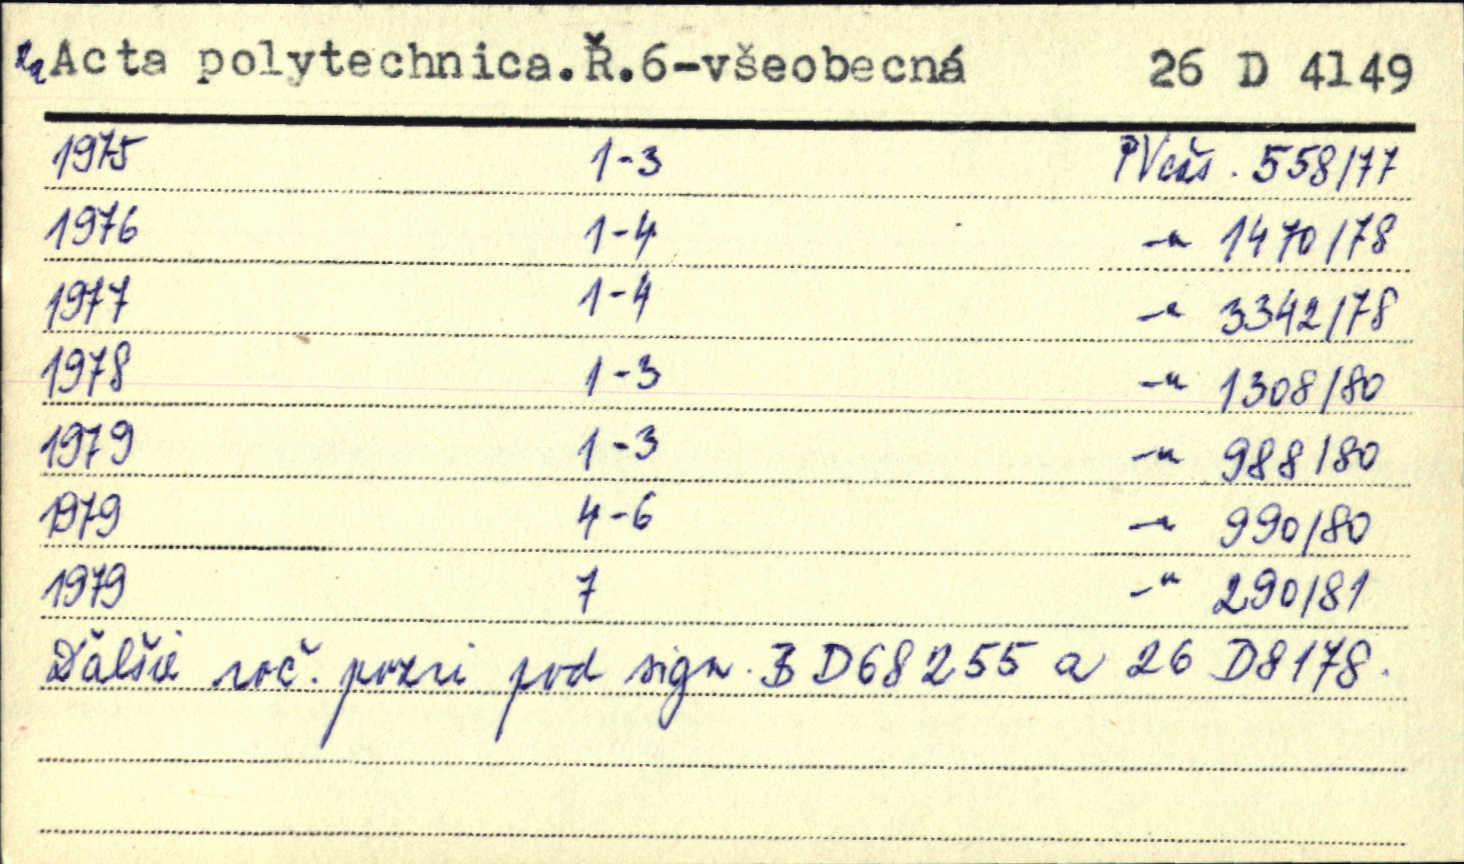 Acta polytechnica.Ř.6-všeobecná 26 D 4149
1975 1-3 PVčás. 558/77
1976 1-4 -"- 1470/78
1977 1-4 -"- 3342/78
1978 1-3 -"- 1308/80
1979 1-3 -"- 988/80
1979 4-6 -"- 990/80
1979 7 -"- 290/81
Ďalšie roč. pozri pod sign. B D68255 a 26 D8178.